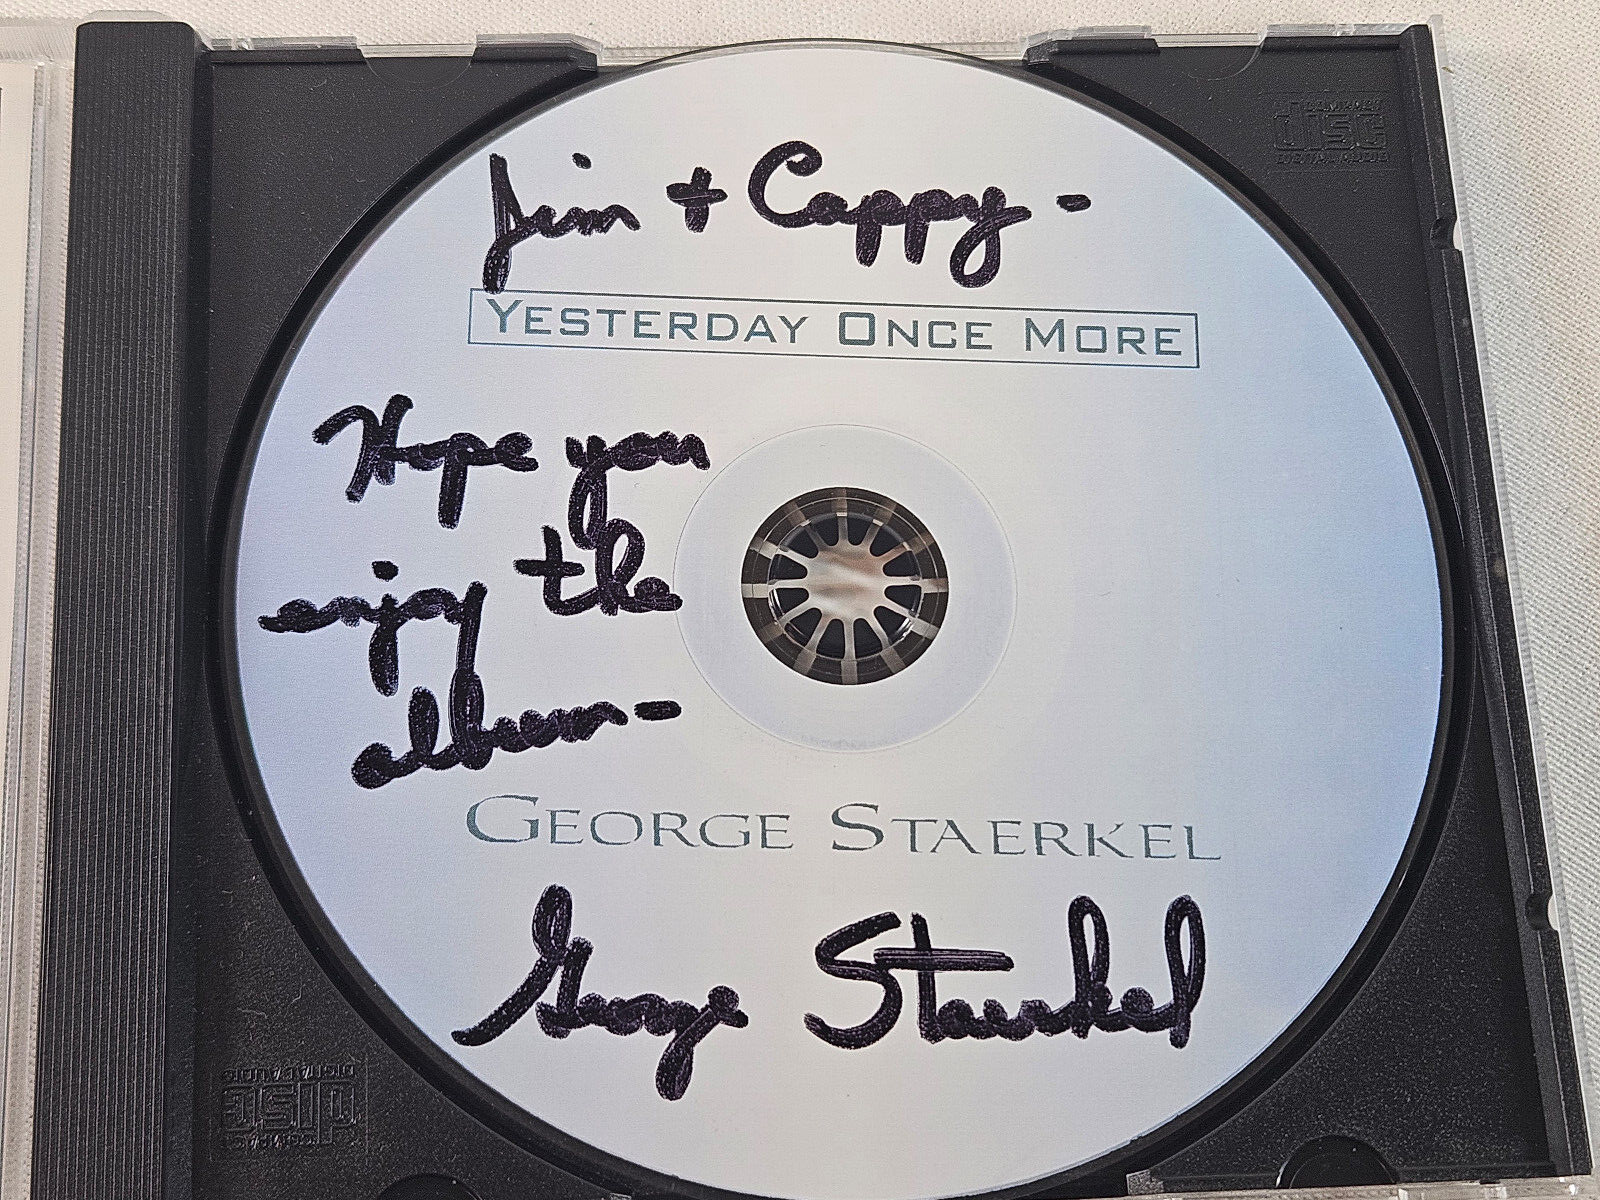 COMPACT
disc
DIGITAL AUDIO
Jim + Cappy -
YESTERDAY ONCE MORE
Hope you
enjoy the
album-
GEORGE STAERKEL
George Staerkel
COMPACT
disc
DIGITAL AUDIO